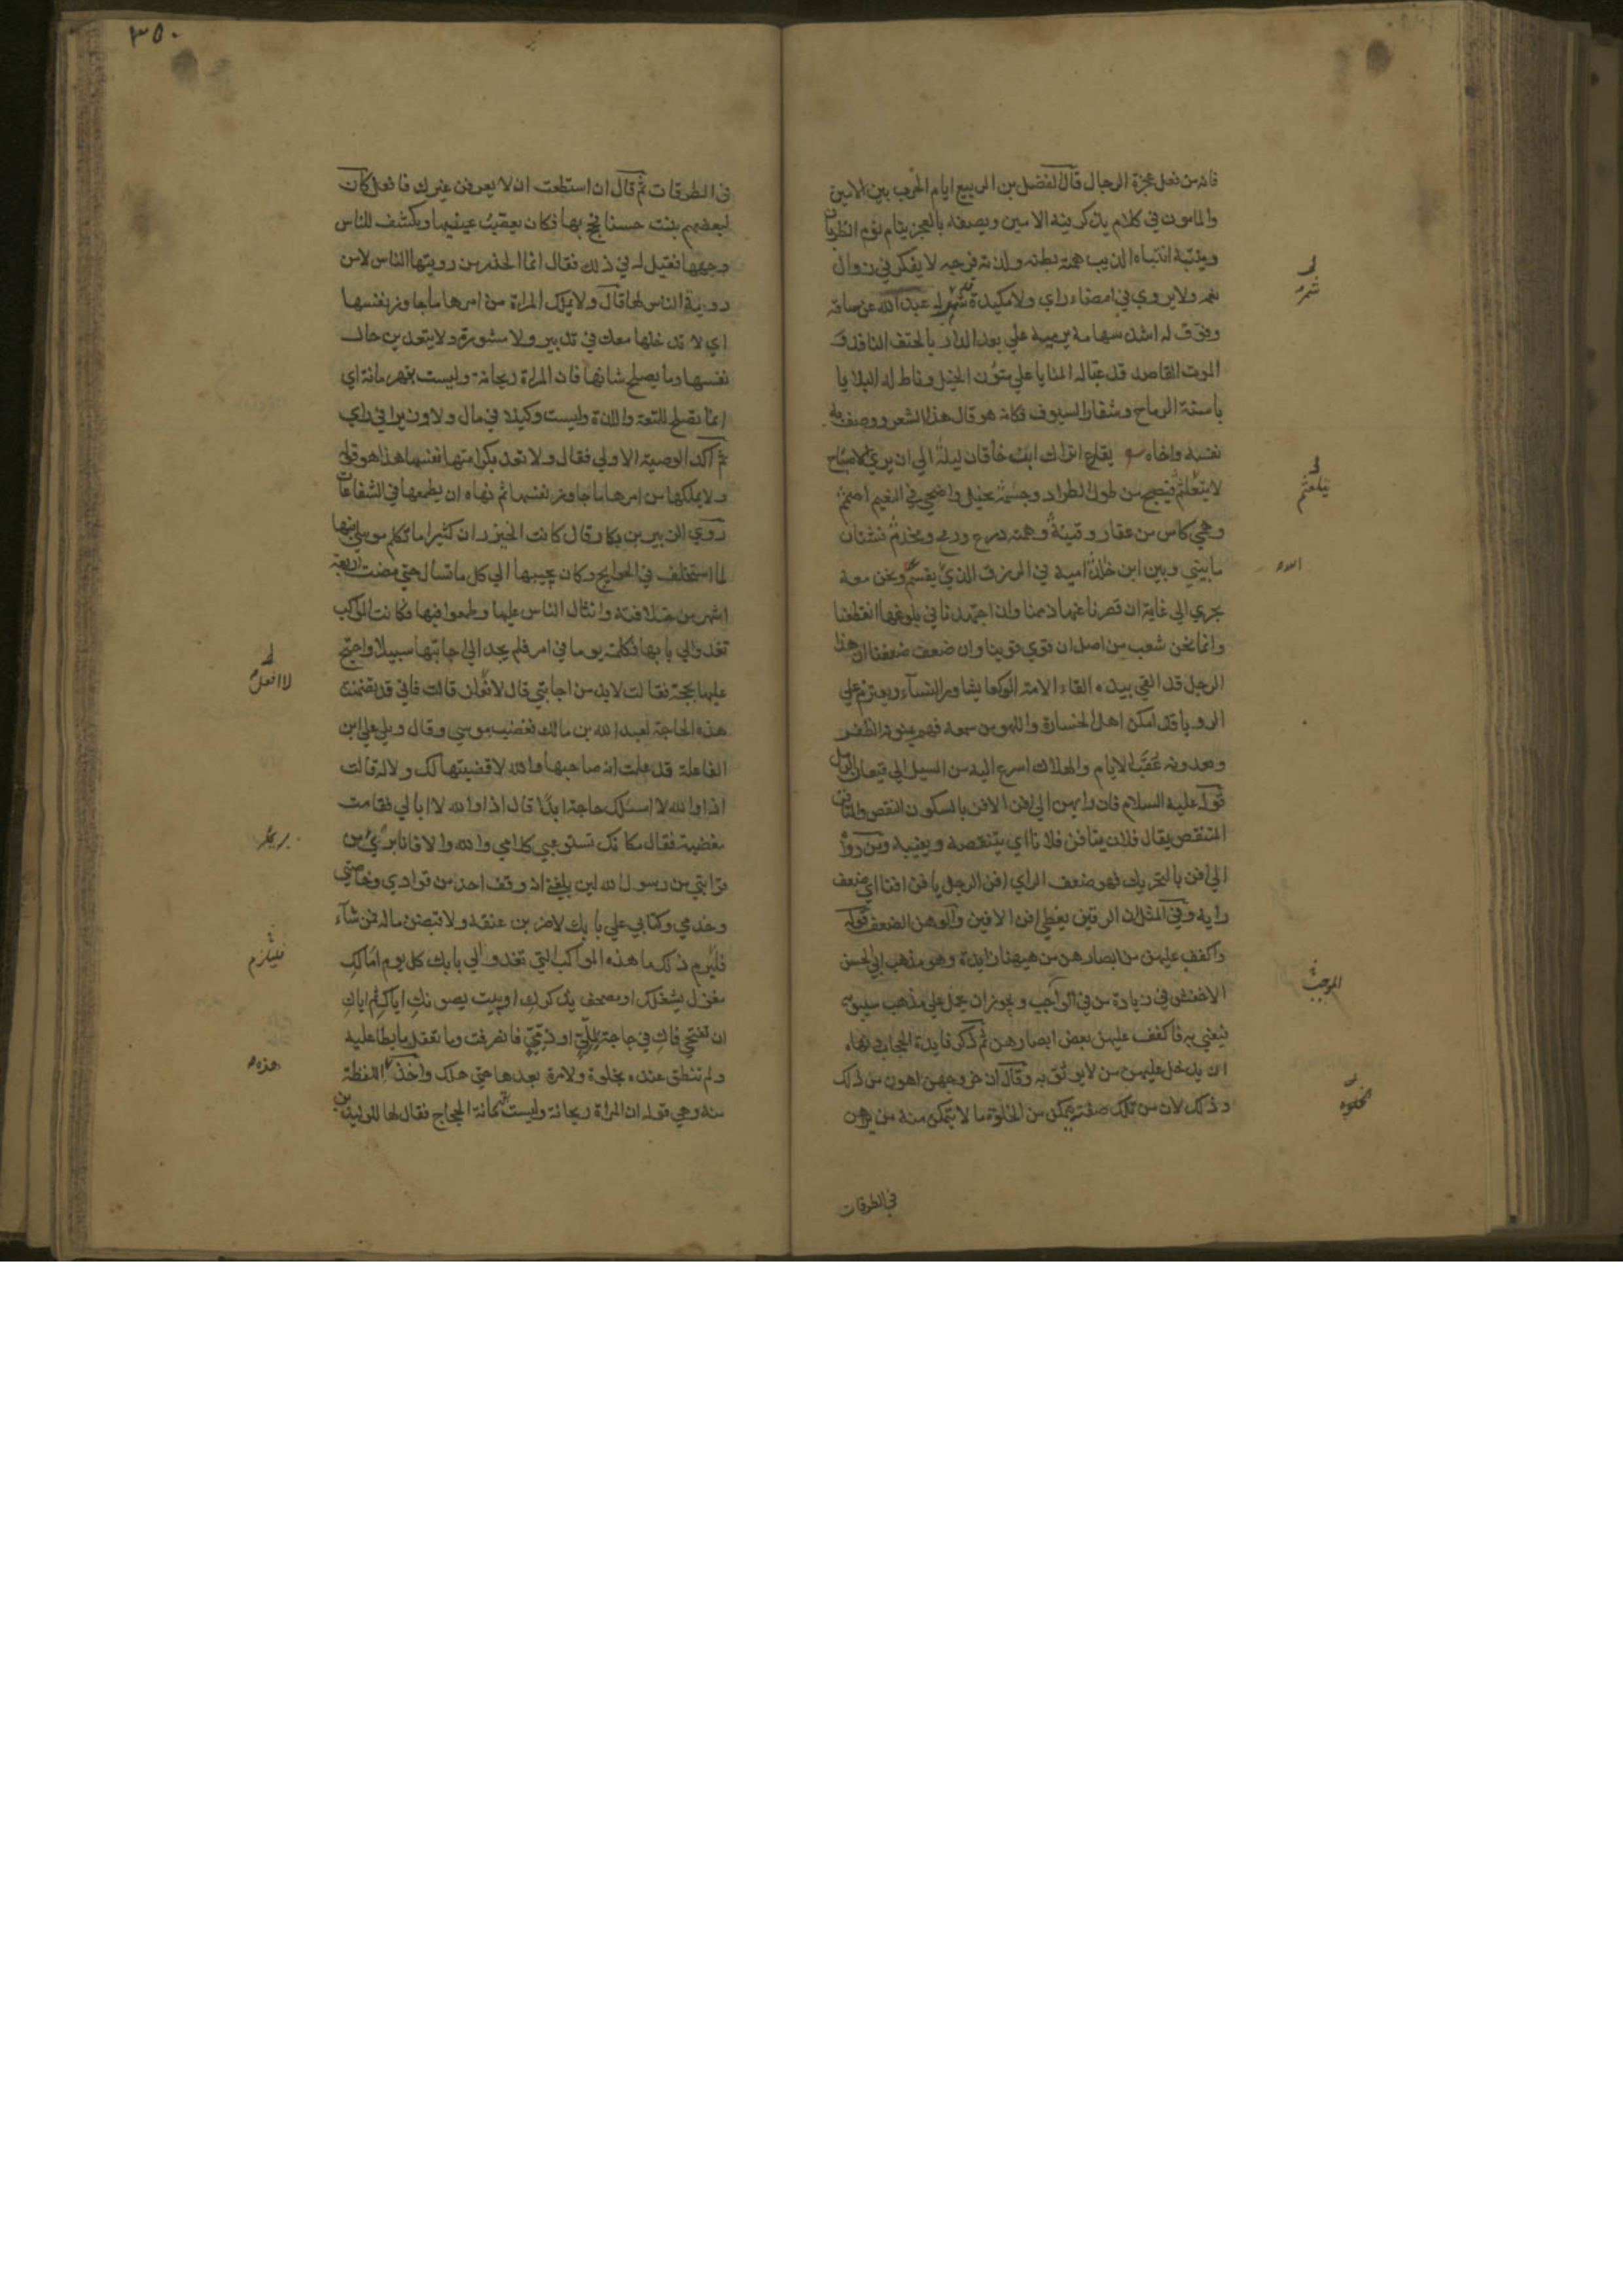 فانه من فعل عجزة الرجال قال الفضل بن الربيع ايام الحرب بين الامين
والمامون في كلام يذكر فيه الامين ويصفه بالعجز ينام نوم الظربان
وينتبه انتباه الذيب همته بطنه ولذته فرجه لا يفكر في زوال
نعمه ولا يروي في امضاء راي ولا مكيدة قد شمر له عبد الله عن ساقه
وفوق له اشد سهامه يرميه علي بعد الدار بالحتف النافذ و
الموت القاصد قد عبّا له المنايا علي متون الخيل وناط له البلايا
باسنة الرماح وشفار السيوف فكانه هو قال هذا الشعر ووصف به
نفسه واخاه يقارع اتراك ابن خاقان ليلة الي ان يري الاصباح
لا يتلعثم فيصبح من طول الطراد وجسمه نحيل واضحي في النعيم اصمم
وهمي كاس من عقار وقينة وهمته درع ورمح ومخذم فشتان
ما بيني وبين ابن خالد امية في الرزق الذي يقسم ونحن معه
نجري الي غاية ان قصرنا عنها ذممنا وان اجتهدنا في بلوغها انقطعنا
وانما نحن شعب من اصل ان قوي قوينا وان ضعف ضعفنا ان هذا
الرجل قد القي بيده القاء الامة الوكعا يشاور النساء ويعتزم علي
الرويا قد امكن اهل الخسارة واللهو من سمعه فهم يمنونه الظفر
ويعدونه عقب الايام والهلاك اسرع اليه من السيل الي قيعان الرمل
قوله عليه السلام فان رايهن الي افن الافن بالسكون النقص والمتافن
المتنقص يقال فلان يتافن فلانا اي يتنقصه ويعيبه ومن رواه
الي افن بالتحريك فهو ضعف الراي افن الرجل يافن افنا اي ضعف
رايه وفي المثل ان الرقين يغطي افن الافين والوهن الضعف قوله
واكفف عليهن من ابصارهن من هيهنا زايدة وهو مذهب ابي الحسن
الاخفش في زيادة من في الواجب ويجوز ان يحمل علي مذهب سيبويه
فيعني به فاكفف عليهن بعض ابصارهن ثم ذكر فايدة الحجاب ونهاه
ان يدخل عليهن من لا يوثق به وقال ان خروجهن اهون من ذلك
وذلك لان من تلك صفته يتمكن من الخلوة ما لا يتمكن منه من يراهن
في الطرقات
شمر
يتلعثم
الموجب
الخلوة
٣٥٠
في الطرقات ثم قال ان استطعت ان لا يعرفن غيرك فافعل كان
لبعضهم بنت حسنا فحج بها فكان يعصب عينيها ويكشف للناس
وجهها فقيل له في ذلك فقال انما الحذر من رويتها الناس لا من
روية الناس لها قال ولا يملك المراة من امرها ما جاوز نفسها
اي لا تدخلها معك في تدبير ولا مشورة ولا يتعدين حال
نفسها وما يصلح شانها فان المراة ريحانة وليست بقهرمانة اي
انما تصلح للمتعة واللذة وليست وكيلا في مال ولا وزيرا في راي
ثم اكد الوصية الاولي فقال ولا تعد بكرامتها نفسها هذا هو قوله
ولا يملكها من امرها ما جاوز نفسها ثم نهاه ان يطمعها في الشفاعات
روي الزبير بن بكار قال كانت الخيزران كثيرا ما تكلم موسي ابنها
لما استخلف في الحوايج وكان يجيبها الي كل ما تسال حتي مضت اربعة
اشهر من خلافته وانثال الناس عليها وطمعوا فيها فكانت المواكب
تغدوالي بابها فكلمته يوما في امر فلم يجد الي اجابتها سبيلا واحتج
عليها بحجة فقالت لا بد من اجابتي قال لا افعل قالت فاني قد تضمنت
هذه الحاجة لعبد الله بن مالك فغضب موسي وقال ويلي علي ابن
الفاعلة قد علمت انه صاحبها والله لا قضيتها لك ولا له قالت
اذا والله لا اسئلك حاجة ابدا قال اذا والله لا ابالي فقامت
مغضبة فقال مكانك تستوعبي كلامي والله والا فانا بري من
قرابتي من رسول الله لين بلغني انه وقف احد من قوادي وخاصتي
وخدمي وكتابي علي بابك لاضربن عنقه ولاقبضن ماله فمن شآء
فليلزم ذلك ما هذه المواكب التي تغدو الي بابك كل يوم اما لك
مغزل يشغلك او مصحف يذكرك او بيت يصونك اياك ثم اياك
ان تفتحي فاك في حاجة لملي او ذمي فانصرفت وما تعقل ما يطا عليه
ولم تنطق عنده بحلوة ولا مرة بعدها حتي هلك واخذ اللفظة
منه وهي قوله ان المراة ريحانة وليست بقهرمانة الحجاج فقال لها للوليد بن
لا افعل
فليلزم
هذه